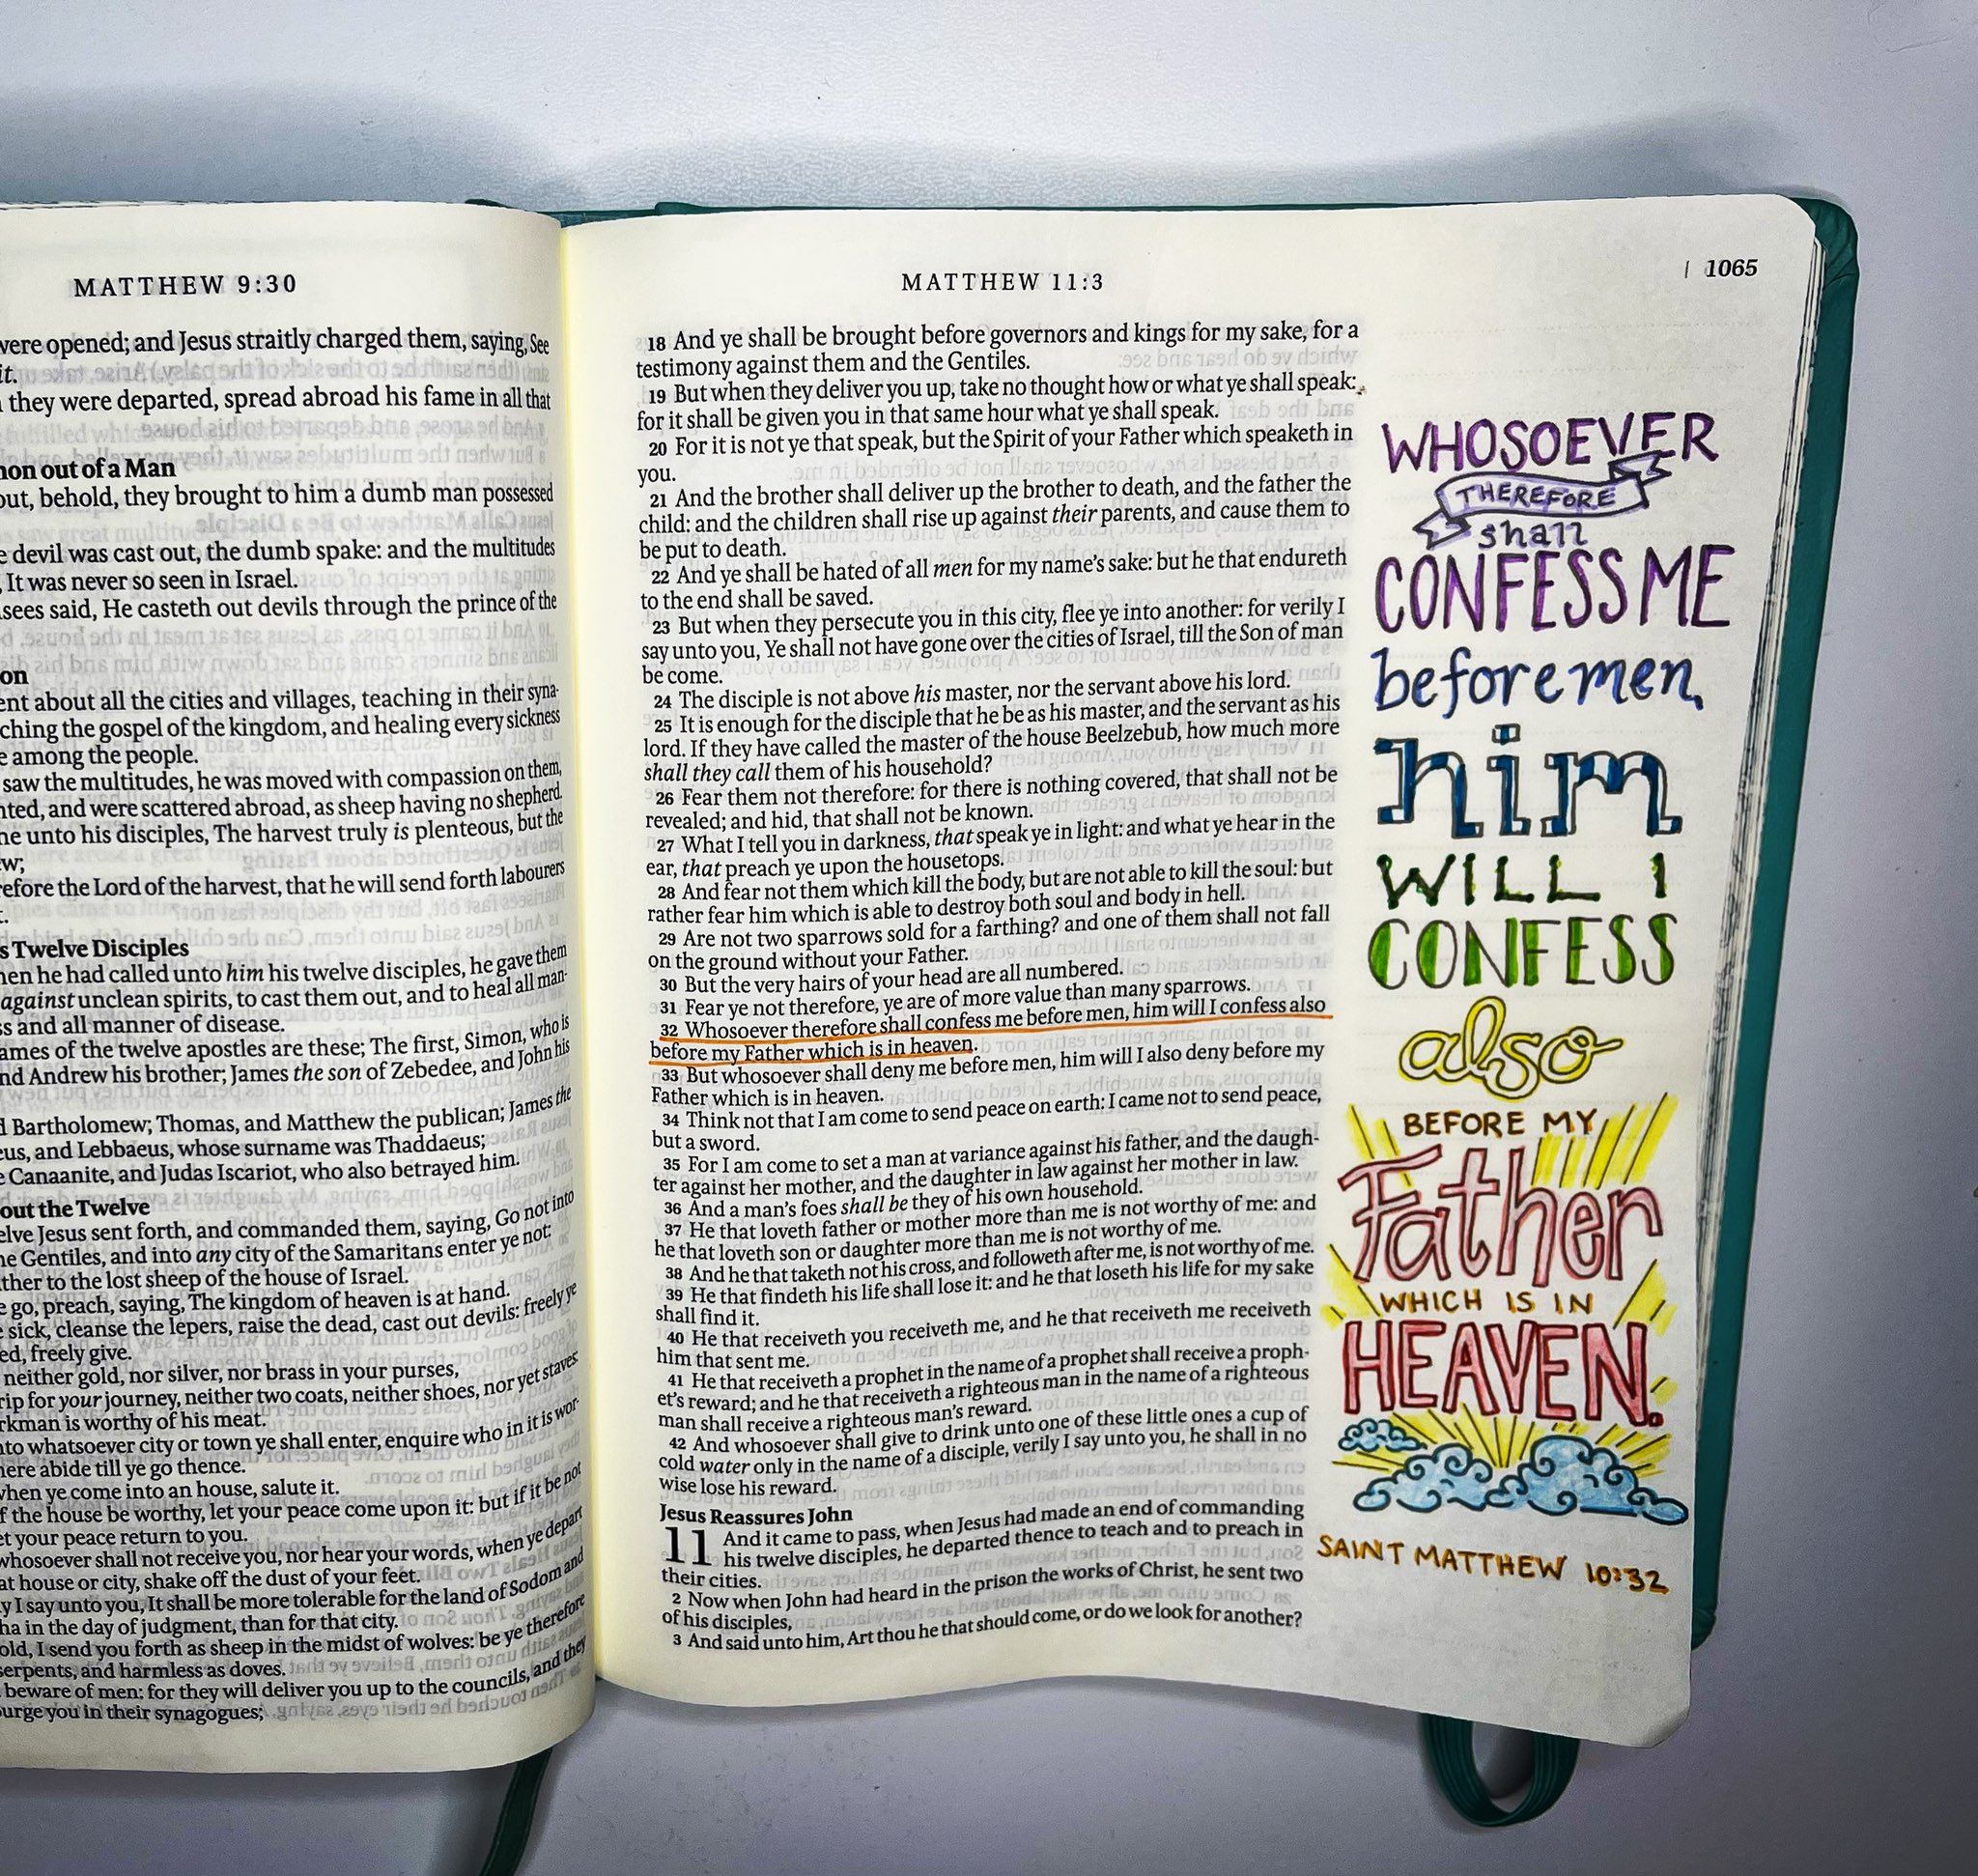 MATTHEW 9:30
were opened; and Jesus straitly charged them, saying, See
it.
they were departed, spread abroad his fame in all that
out of a Man
out, behold, they brought to him a dumb man possessed
devil was cast out, the dumb spake: and the multitudes
It was never so seen in Israel.
said, He casteth out devils through the prince of the
on
about all the cities and villages, teaching in their syna-
the gospel of the kingdom, and healing every sickness
among the people.
saw the multitudes, he was moved with compassion on them,
and were scattered abroad, as sheep having no shepherd.
unto his disciples, The harvest truly is plenteous, but the
the Lord of the harvest, that he will send forth labourers
Twelve Disciples
he had called unto him his twelve disciples, he gave them
against unclean spirits, to cast them out, and to heal all man-
and all manner of disease.
names of the twelve apostles are these; The first, Simon, who is
and Andrew his brother; James the son of Zebedee, and John his
Bartholomew; Thomas, and Matthew the publican; James the
and Lebbaeus, whose surname was Thaddaeus;
Canaanite, and Judas Iscariot, who also betrayed him.
out the Twelve
Jesus sent forth, and commanded them, saying, Go not into
Gentiles, and into any city of the Samaritans enter ye not:
to the lost sheep of the house of Israel.
go, preach, saying, The kingdom of heaven is at hand.
sick, cleanse the lepers, raise the dead, cast out devils: freely ye
freely give.
neither gold, nor silver, nor brass in your purses,
for your journey, neither two coats, neither shoes, nor yet staves:
is worthy of his meat.
whatsoever city or town ye shall enter, enquire who in it is wor-
abide till ye go thence.
when ye come into an house, salute it.
the house be worthy, let your peace come upon it: but if it be not
your peace return to you.
whosoever shall not receive you, nor hear your words, when ye depart
house or city, shake off the dust of your feet.
I say unto you, It shall be more tolerable for the land of Sodom and
in the day of judgment, than for that city.
I send you forth as sheep in the midst of wolves: be ye therefore
serpents, and harmless as doves.
beware of men: for they will deliver you up to the councils, and they
you in their synagogues;
MATTHEW 11:3
1065
18 And ye shall be brought before governors and kings for my sake, for a
testimony against them and the Gentiles.
19 But when they deliver you up, take no thought how or what ye shall speak:
for it shall be given you in that same hour what ye shall speak.
20 For it is not ye that speak, but the Spirit of your Father which speaketh in
you.
21 And the brother shall deliver up the brother to death, and the father the
child: and the children shall rise up against their parents, and cause them to
be put to death.
22 And ye shall be hated of all men for my name's sake: but he that endureth
to the end shall be saved.
23 But when they persecute you in this city, flee ye into another: for verily I
say unto you, Ye shall not have gone over the cities of Israel, till the Son of man
be come.
24 The disciple is not above his master, nor the servant above his lord.
25 It is enough for the disciple that he be as his master, and the servant as his
lord. If they have called the master of the house Beelzebub, how much more
shall they call them of his household?
26 Fear them not therefore: for there is nothing covered, that shall not be
revealed; and hid, that shall not be known.
27 What I tell you in darkness, that speak ye in light: and what ye hear in the
ear, that preach ye upon the housetops.
28 And fear not them which kill the body, but are not able to kill the soul: but
rather fear him which is able to destroy both soul and body in hell.
29 Are not two sparrows sold for a farthing? and one of them shall not fall
on the ground without your Father.
30 But the very hairs of your head are all numbered.
31 Fear ye not therefore, ye are of more value than many sparrows.
32 Whosoever therefore shall confess me before men, him will I confess also
before my Father which is in heaven.
33 But whosoever shall deny me before men, him will I also deny before my
Father which is in heaven.
34 Think not that I am come to send peace on earth: I came not to send peace,
but a sword.
35 For I am come to set a man at variance against his father, and the daugh-
ter against her mother, and the daughter in law against her mother in law.
36 And a man's foes shall be they of his own household.
37 He that loveth father or mother more than me is not worthy of me: and
he that loveth son or daughter more than me is not worthy of me.
38 And he that taketh not his cross, and followeth after me, is not worthy of me.
39 He that findeth his life shall lose it: and he that loseth his life for my sake
shall find it.
40 He that receiveth you receiveth me, and he that receiveth me receiveth
him that sent me.
41 He that receiveth a prophet in the name of a prophet shall receive a proph-
et's reward; and he that receiveth a righteous man in the name of a righteous
man shall receive a righteous man's reward.
42 And whosoever shall give to drink unto one of these little ones a cup of
cold water only in the name of a disciple, verily I say unto you, he shall in no
wise lose his reward.
Jesus Reassures John
11 And it came to pass, when Jesus had made an end of commanding
his twelve disciples, he departed thence to teach and to preach in
their cities.
2 Now when John had heard in the prison the works of Christ, he sent two
of his disciples,
3 And said unto him, Art thou he that should come, or do we look for another?
WHOSOEVER
THEREFORE
shall
CONFESS ME
before men,
him
WILL I
CONFESS
also
BEFORE MY
Father
WHICH IS IN
HEAVEN.
SAINT MATTHEW 10:32